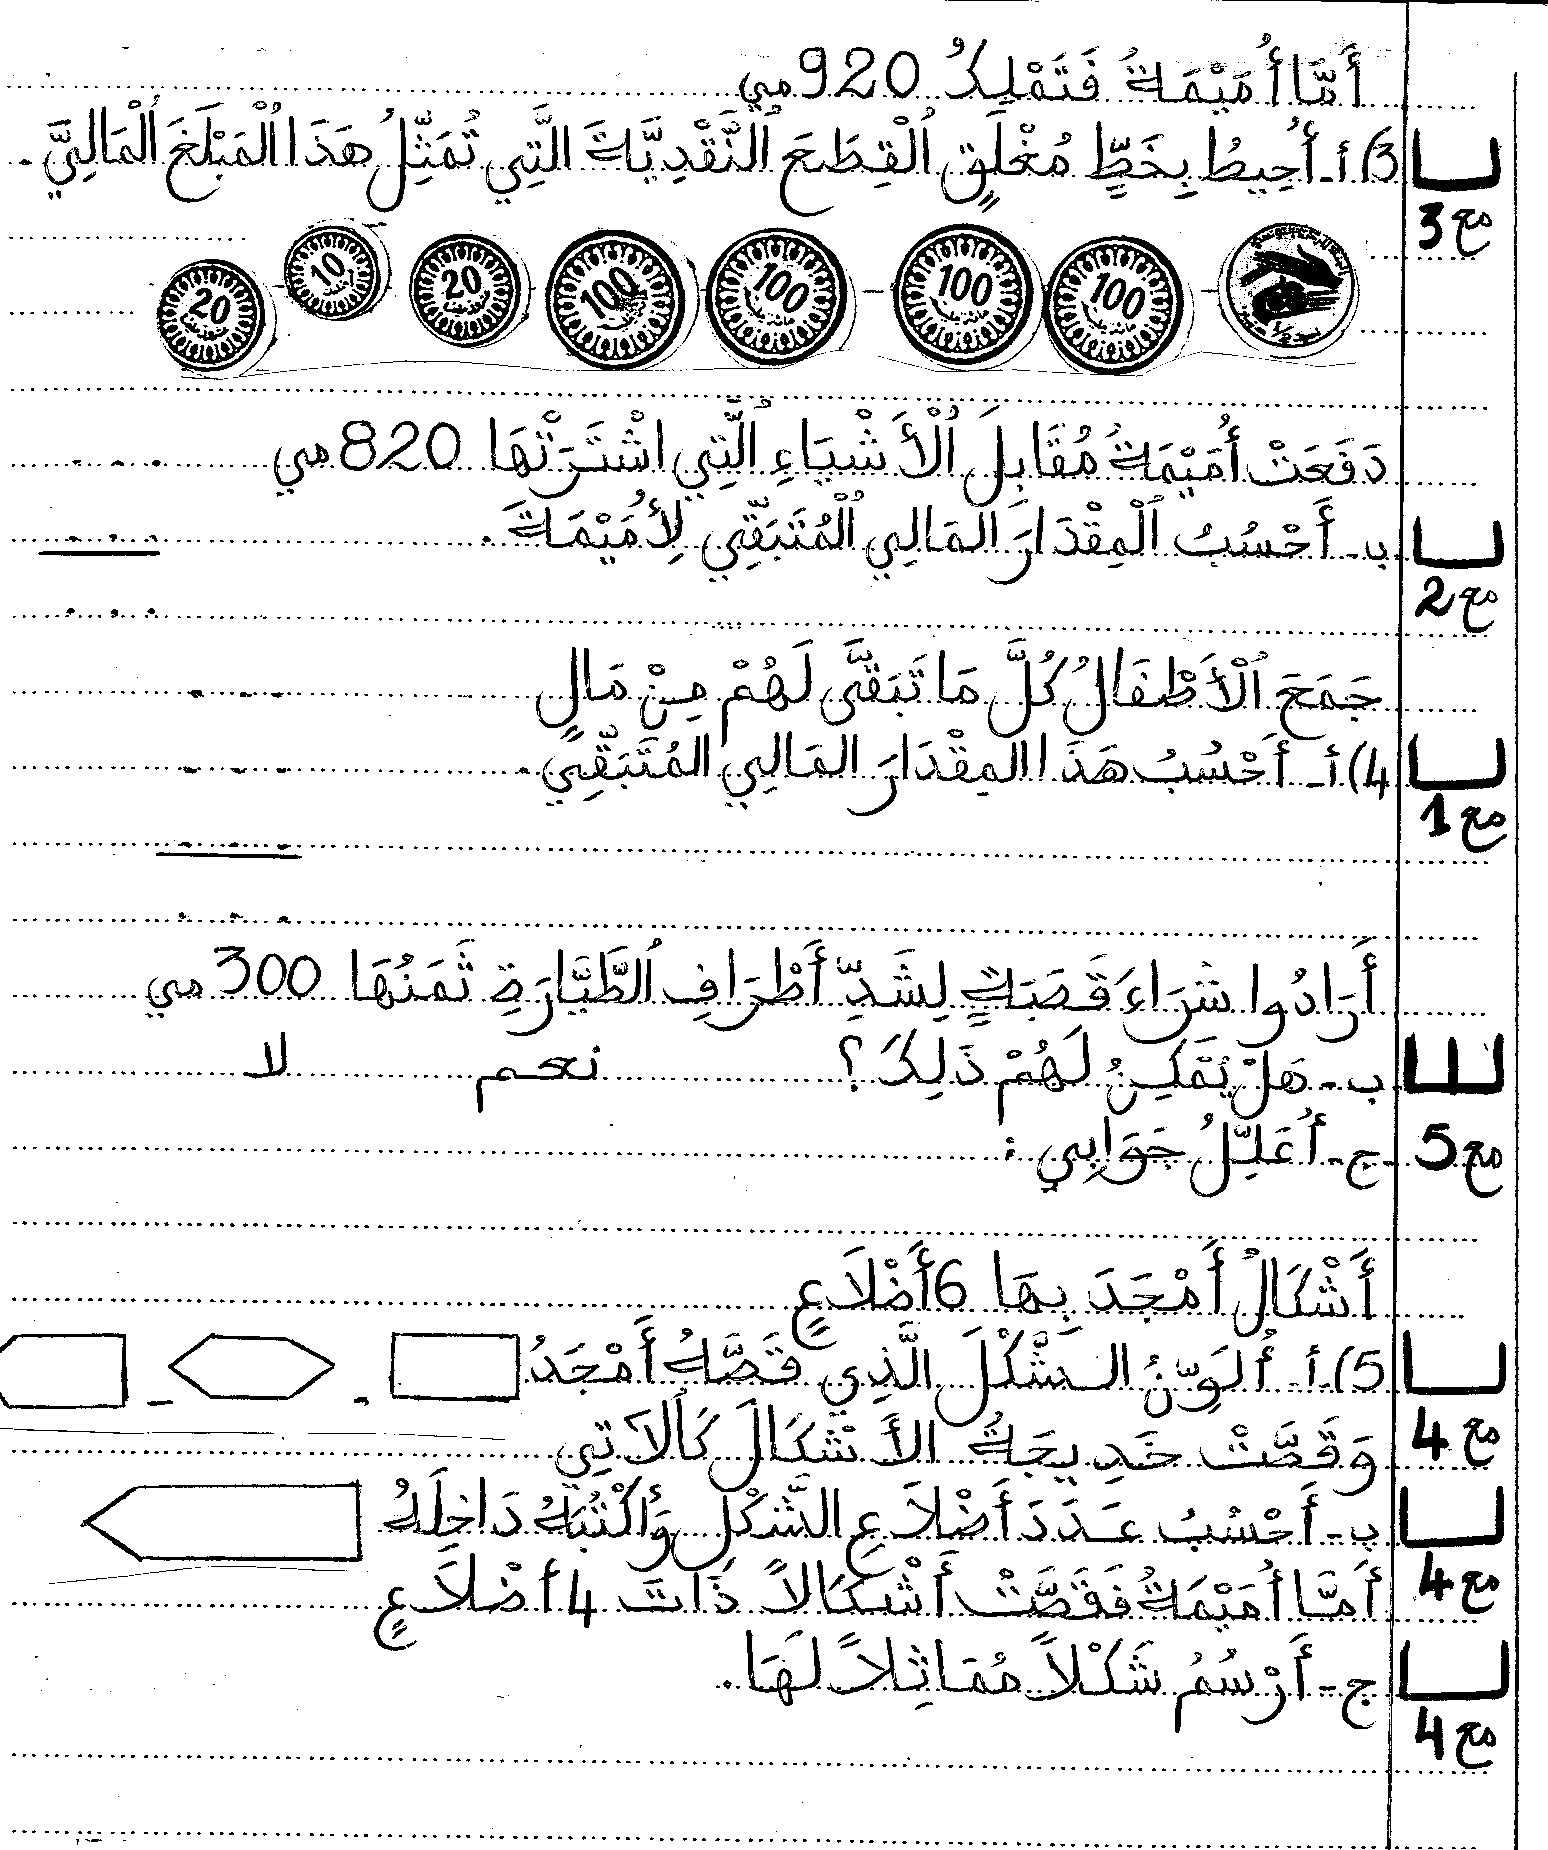 أَمَّا أُمَيْمَةُ فَتَمْلِكُ 920 مي
3) أ - أُحِيطُ بِخَطٍّ مُغْلَقٍ الْقِطَعَ النَّقْدِيَّةَ الَّتِي تُمَثِّلُ هَذَا الْمَبْلَغَ الْمَالِيَّ.
مع 3
20 10 20 100 100 100 100
دَفَعَتْ أُمَيْمَةُ مُقَابِلَ الْأَشْيَاءِ الَّتِي اشْتَرَتْهَا 820 مي
ب - أَحْسُبُ الْمِقْدَارَ المَالِي الْمُتَبَقِّي لِأُمَيْمَةَ.
مع 2
جَمَعَ الْأَطْفَالُ كُلَّ مَا تَبَقَّى لَهُمْ مِنْ مَالٍ
4) أ - أَحْسُبُ هَذَا المِقْدَارَ المَالِي المُتَبَقِّي.
مع 1
أَرَادُوا شِرَاءَ قَصَبَةٍ لِشَدِّ أَطْرَافِ الطَّيَّارَةِ ثَمَنُهَا 300 مي
ب - هَلْ يُمْكِنُ لَهُمْ ذَلِكَ؟ نعم لا
ج - أُعَلِّلُ جَوَابِي :
مع 5
أَشْكَالُ أَمْجَدَ بِهَا 6 أَضْلَاعٍ
5) أ - أُلَوِّنُ الشَّكْلَ الَّذِي قَصَّهُ أَمْجَدُ
مع 4
وَقَصَّتْ خَدِيجَةُ الأَشْكَالَ كَالْآتِي
ب - أَحْسُبُ عَدَدَ أَضْلَاعِ الشَّكْلِ وَأَكْتُبُهُ دَاخِلَهُ
مع 4
أَمَّا أُمَيْمَةُ فَقَصَّتْ أَشْكَالاً ذَاتَ 4 أَضْلَاعٍ
ج - أَرْسُمُ شَكْلاً مُمَاثِلاً لَهَا.
مع 4